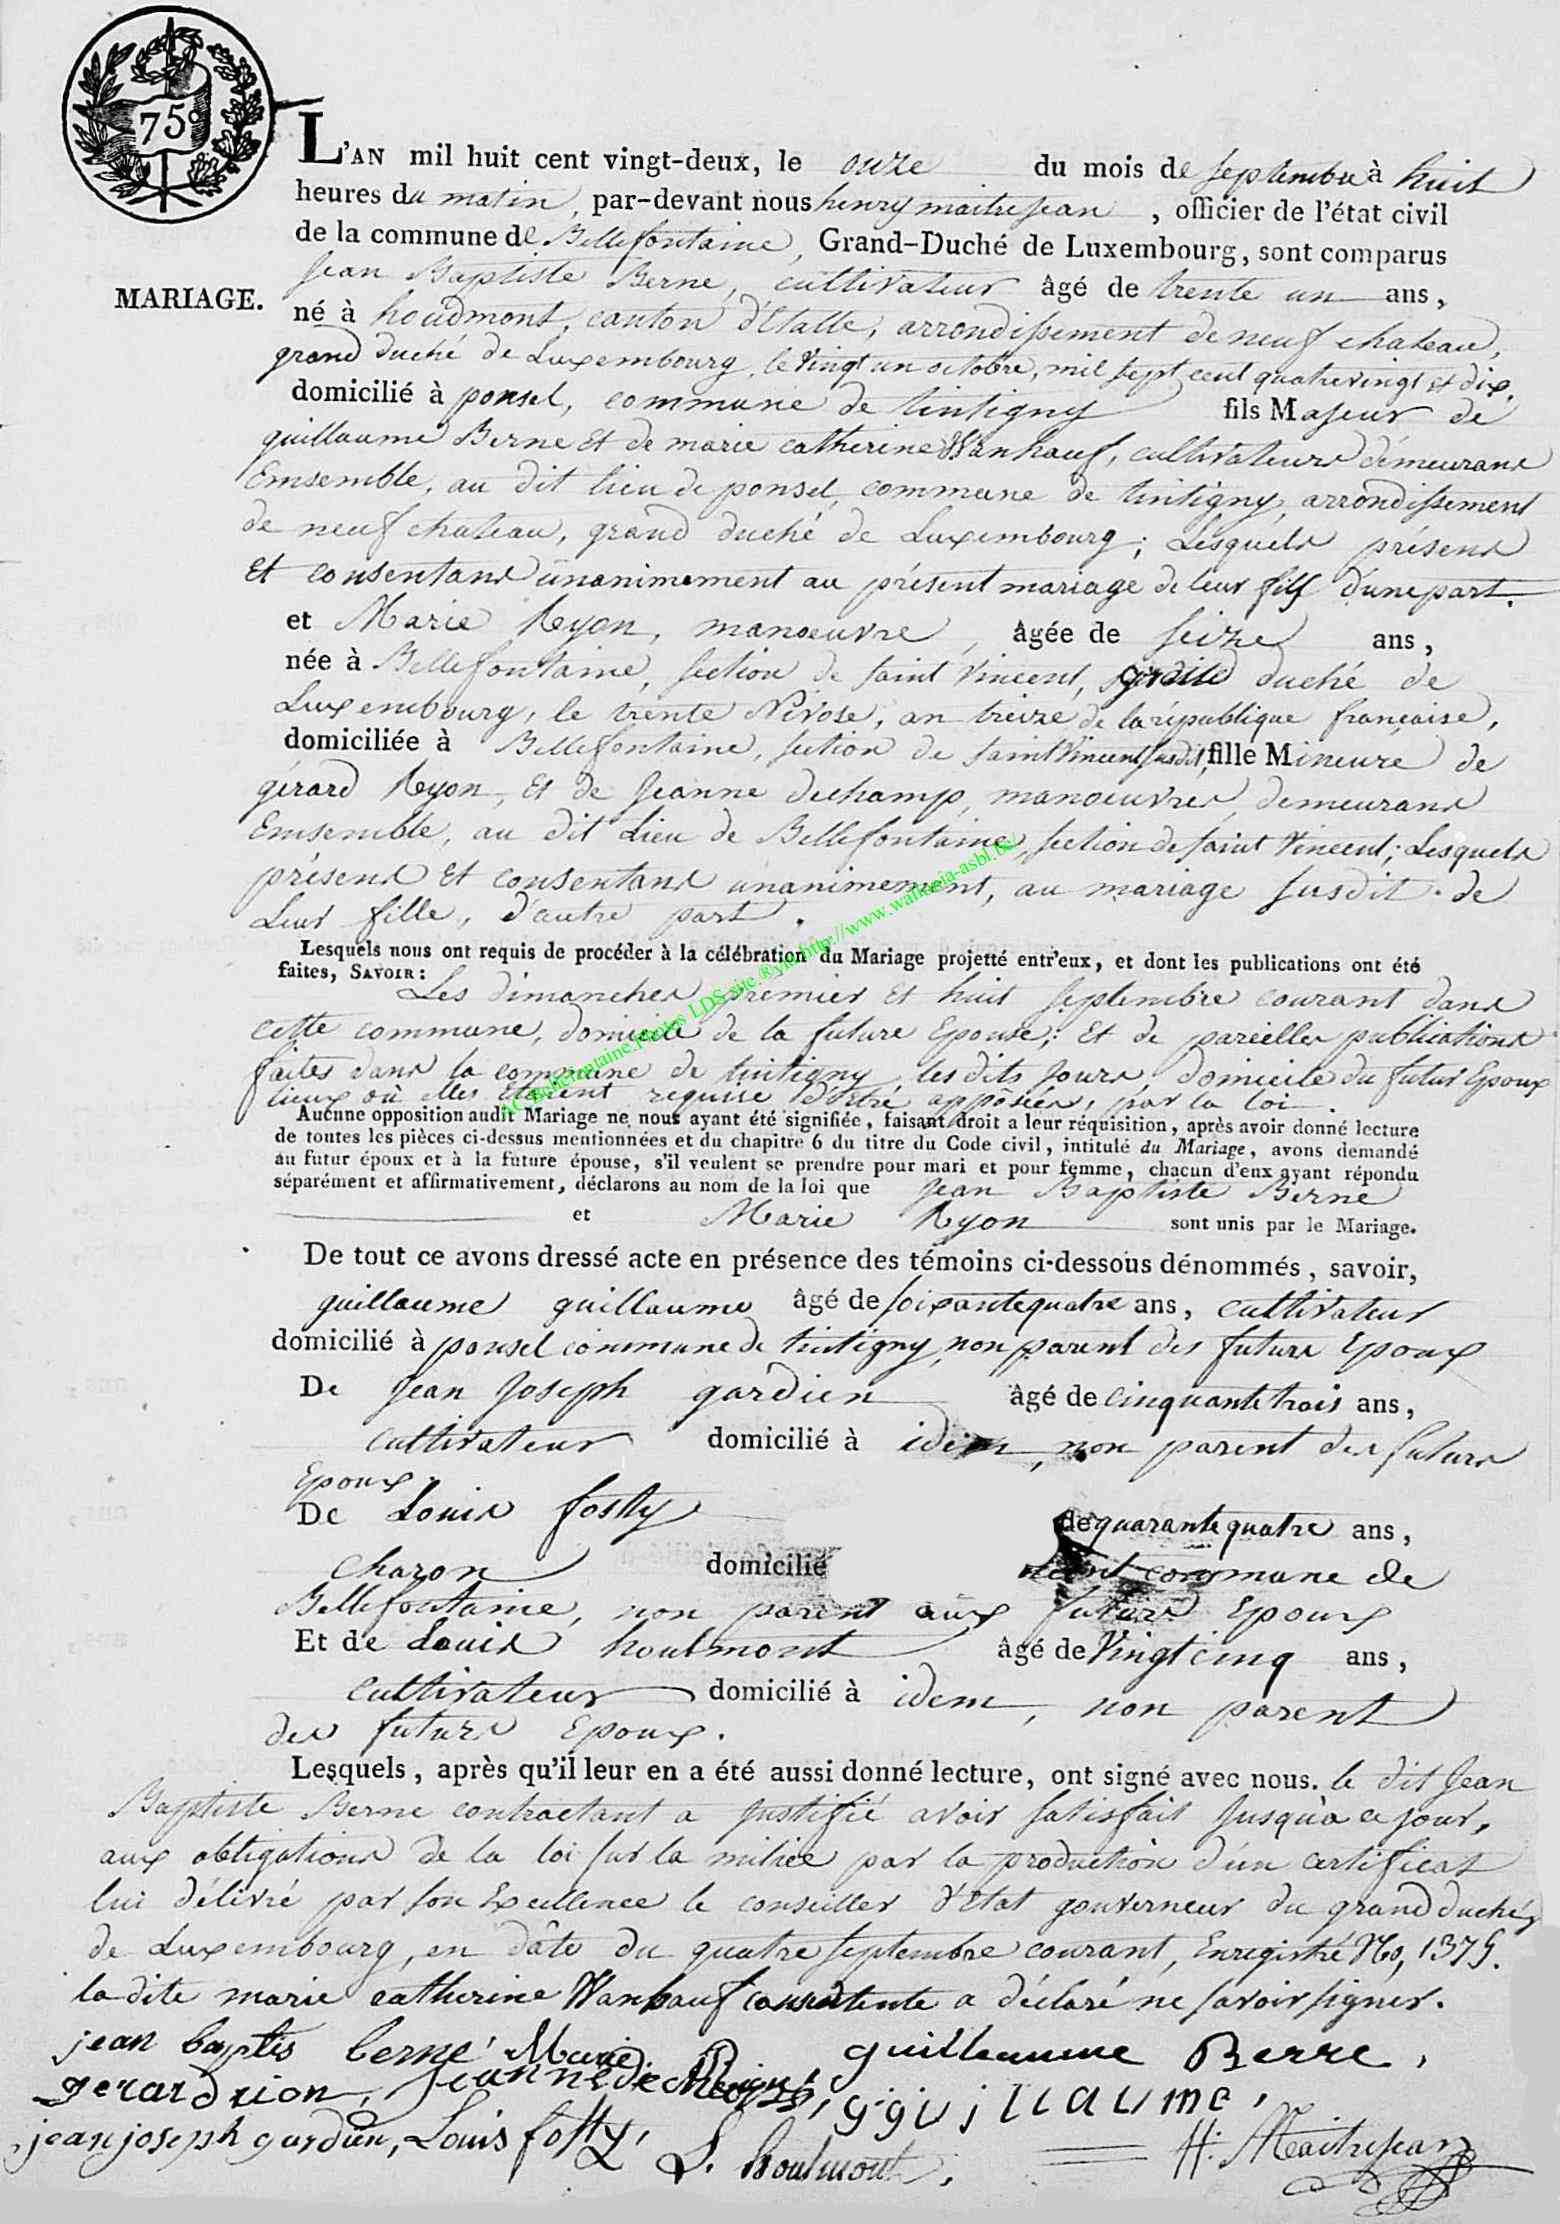 75c
L'AN mil huit cent vingt-deux, le onze du mois de septembre à huit
heures du matin, par-devant nous henry maitrejean, officier de l'état civil
de la commune de Bellefontaine, Grand-Duché de Luxembourg, sont comparus
MARIAGE.
Jean Baptiste Berne, cultivateur âgé de trente un ans,
né à houdmont, canton d'Etalle, arrondissement de neufchateau,
grand duché de Luxembourg, le vingt un octobre, mil sept cent quatrevingt et dix,
domicilié à ponsel, commune de tintigny fils Majeur de
guillaume Berne et de marie catherine Wanhauf, cultivateurs démeurans
Emsemble, au dit lieu de ponsel, commune de tintigny, arrondissement
de neufchateau, grand duché de Luxembourg; Lesquels présens
et consentans unanimement au présent mariage de leur fils d'une part.
et Marie Ryon, manoeuvre, âgée de seize ans,
née à Bellefontaine, section de saint Vincent, grand duché de
Luxembourg, le trente Nivose, an treize de la république française,
domiciliée à Bellefontaine, section de saint Vincent susdit, fille Mineure de
gérard Ryon, et de Jeanne dechamp, manoeuvres, demeurans
Emsemble, au dit Lieu de Bellefontaine, section de saint Vincent; Lesquels
présens et consentans unanimement, au mariage susdit de
Leur fille, d'autre part.
Lesquels nous ont requis de procéder à la célébration du Mariage projetté entr'eux, et dont les publications ont été
faites, SAVOIR:
Les dimanches premier et huit septembre courant dans
cette commune, domicile de la future Epouse; et de pareilles publications
faites dans la commune de tintigny, les dits jours, domicile du futur Epoux
lieux où elles étoient requise d'être apposées, par la loi.
AC Bellefontaine. Photos LDS site ®yio http://www.wallasia-asbl.be/
Aucune opposition audit Mariage ne nous ayant été signifiée, faisant droit a leur réquisition, après avoir donné lecture
de toutes les pièces ci-dessus mentionnées et du chapitre 6 du titre du Code civil, intitulé du Mariage, avons demandé
au futur époux et à la future épouse, s'il veulent se prendre pour mari et pour femme, chacun d'eux ayant répondu
séparément et affirmativement, déclarons au nom de la loi que Jean Baptiste Berne
et Marie Ryon sont unis par le Mariage.
De tout ce avons dressé acte en présence des témoins ci-dessous dénommés, savoir,
guillaume guillaume âgé de soixantequatre ans, cultivateur
domicilié à ponsel commune de tintigny, non parent des futurs Epoux
De Jean Joseph gardien âgé de cinquantetrois ans,
cultivateur domicilié à idem, non parent des futurs
Epoux.
De Louis fostty de quarantequatre ans,
charon domicilié commune de
Bellefontaine, non parent aux futurs Epoux
Et de Louis houlmont âgé de Vingtcinq ans,
cultivateur domicilié à idem, non parent
des futurs Epoux.
Lesquels, après qu'il leur en a été aussi donné lecture, ont signé avec nous. le dit Jean
Baptiste Berne contractant a justifié avoir satisfait jusqu'à ce jour,
aux obligations de la loi sur la milice par la production d'un certificat
lui délivré par son Excellence le conseiller d'Etat gouverneur du grand duché
de Luxembourg, en dâte du quatre septembre courant, Enregistré No, 1375.
la dite marie catherine Wanhauf consentente a déclaré ne savoir signer.
jean baptis berne Marie guilleaume Berre,
gerard rion, Jeanne g:guillaume,
jean joseph gardien, Louis fostty, L. houlmont, H: Maitrejean